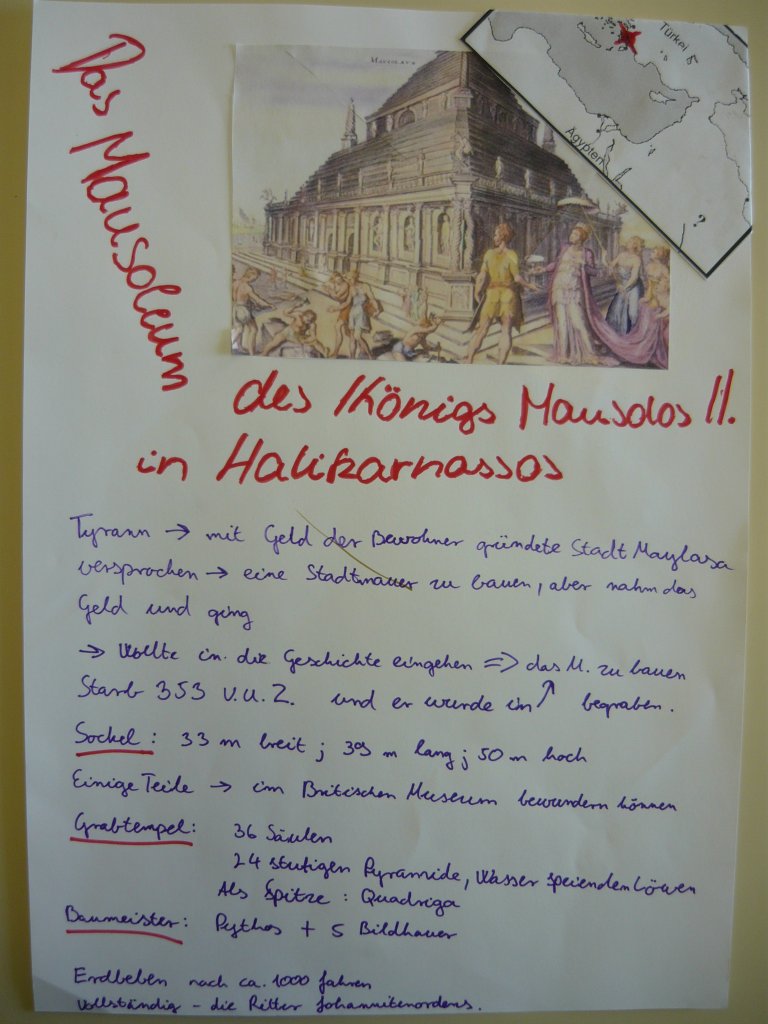 Das Mausoleum
MAVSOLAVS
Türkei
Ägypten
?
des Königs Mausolos II.
in Halikarnassos
Tyrann → mit Geld der Bewohner gründete Stadt Maylasa
versprochen → eine Stadtmauer zu bauen, aber nahm das
Geld und ging
→ Wollte in die Geschichte eingehen => das M. zu bauen
Starb 353 v.u.Z. und er wurde im ↑ begraben.
Sockel: 33 m breit; 39 m lang; 50 m hoch
Einige Teile → im Britischen Museum bewundern können
Grabtempel: 36 Säulen
24 stufigen Pyramide, Wasser speienden Löwen
Als Spitze: Quadriga
Baumeister: Pythos + 5 Bildhauer
Erdbeben nach ca. 1000 Jahren
Vollständig - die Ritter Johannitenordens.